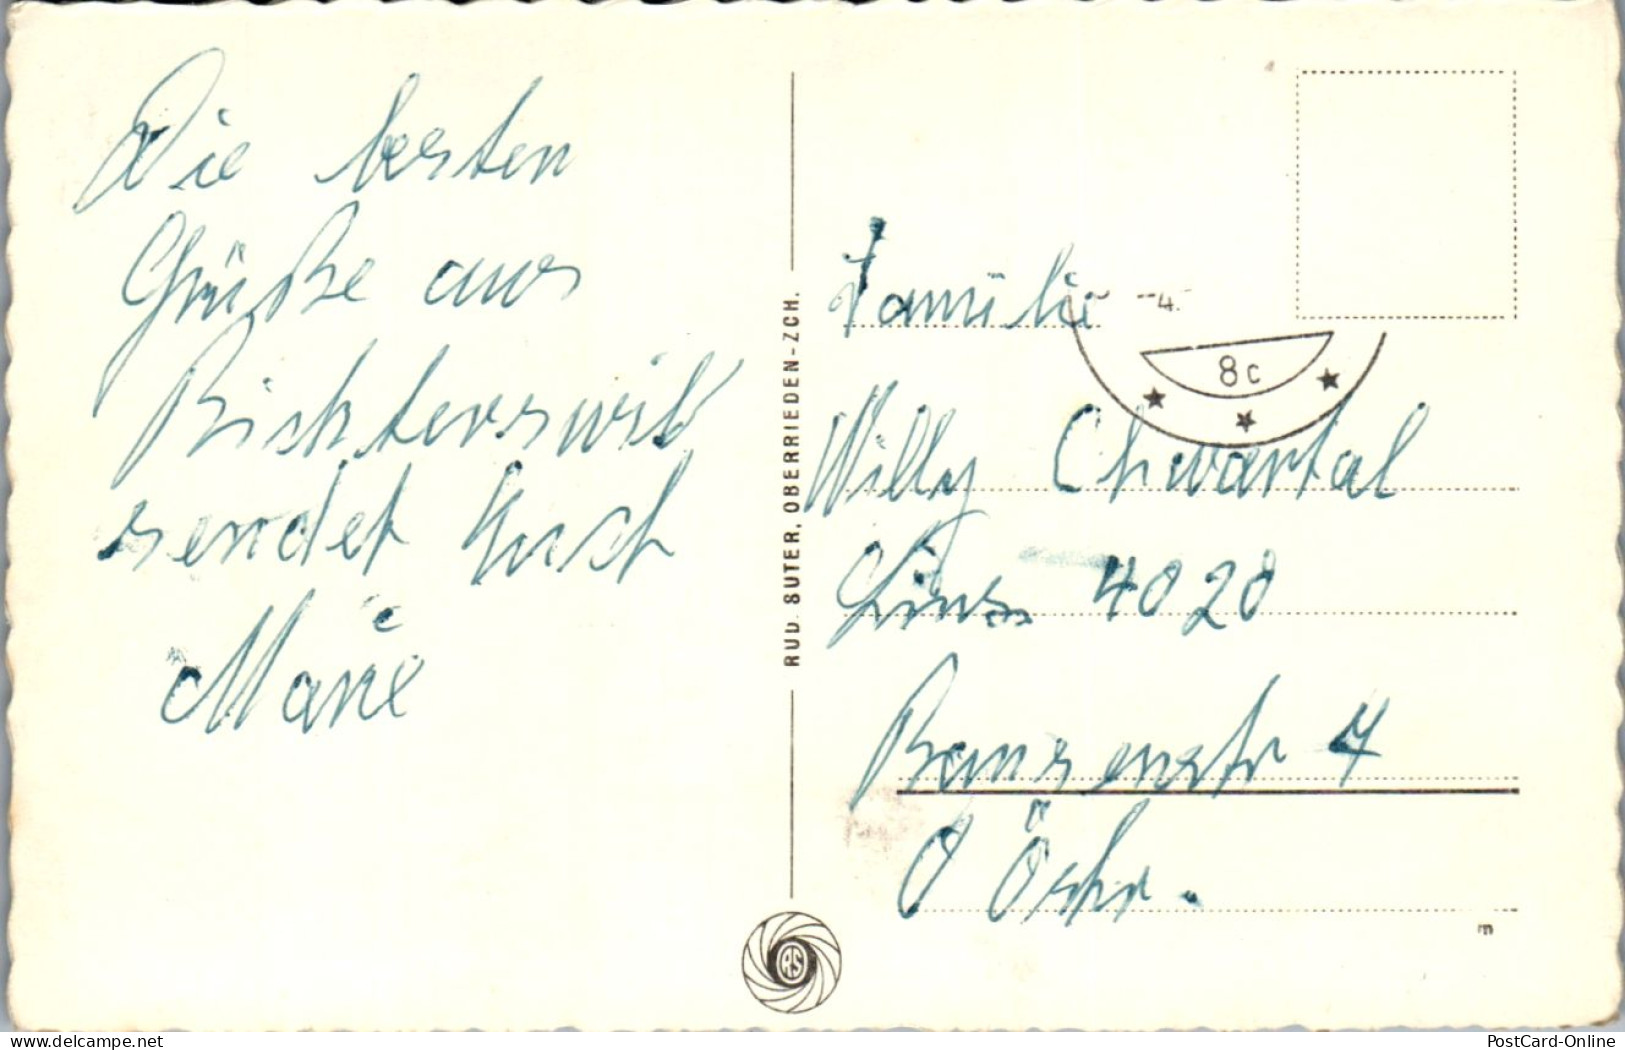 Die besten
Grüße aus
Richterswil
sendet Euch
Marie
RUD. SUTER, OBERRIEDEN-ZCH.
RS
-4.
8c
Familie
Willy Chvartal
Linz 4020
Bansenstr 4
O Östr.
m
delcampe.net
PostCard-Online